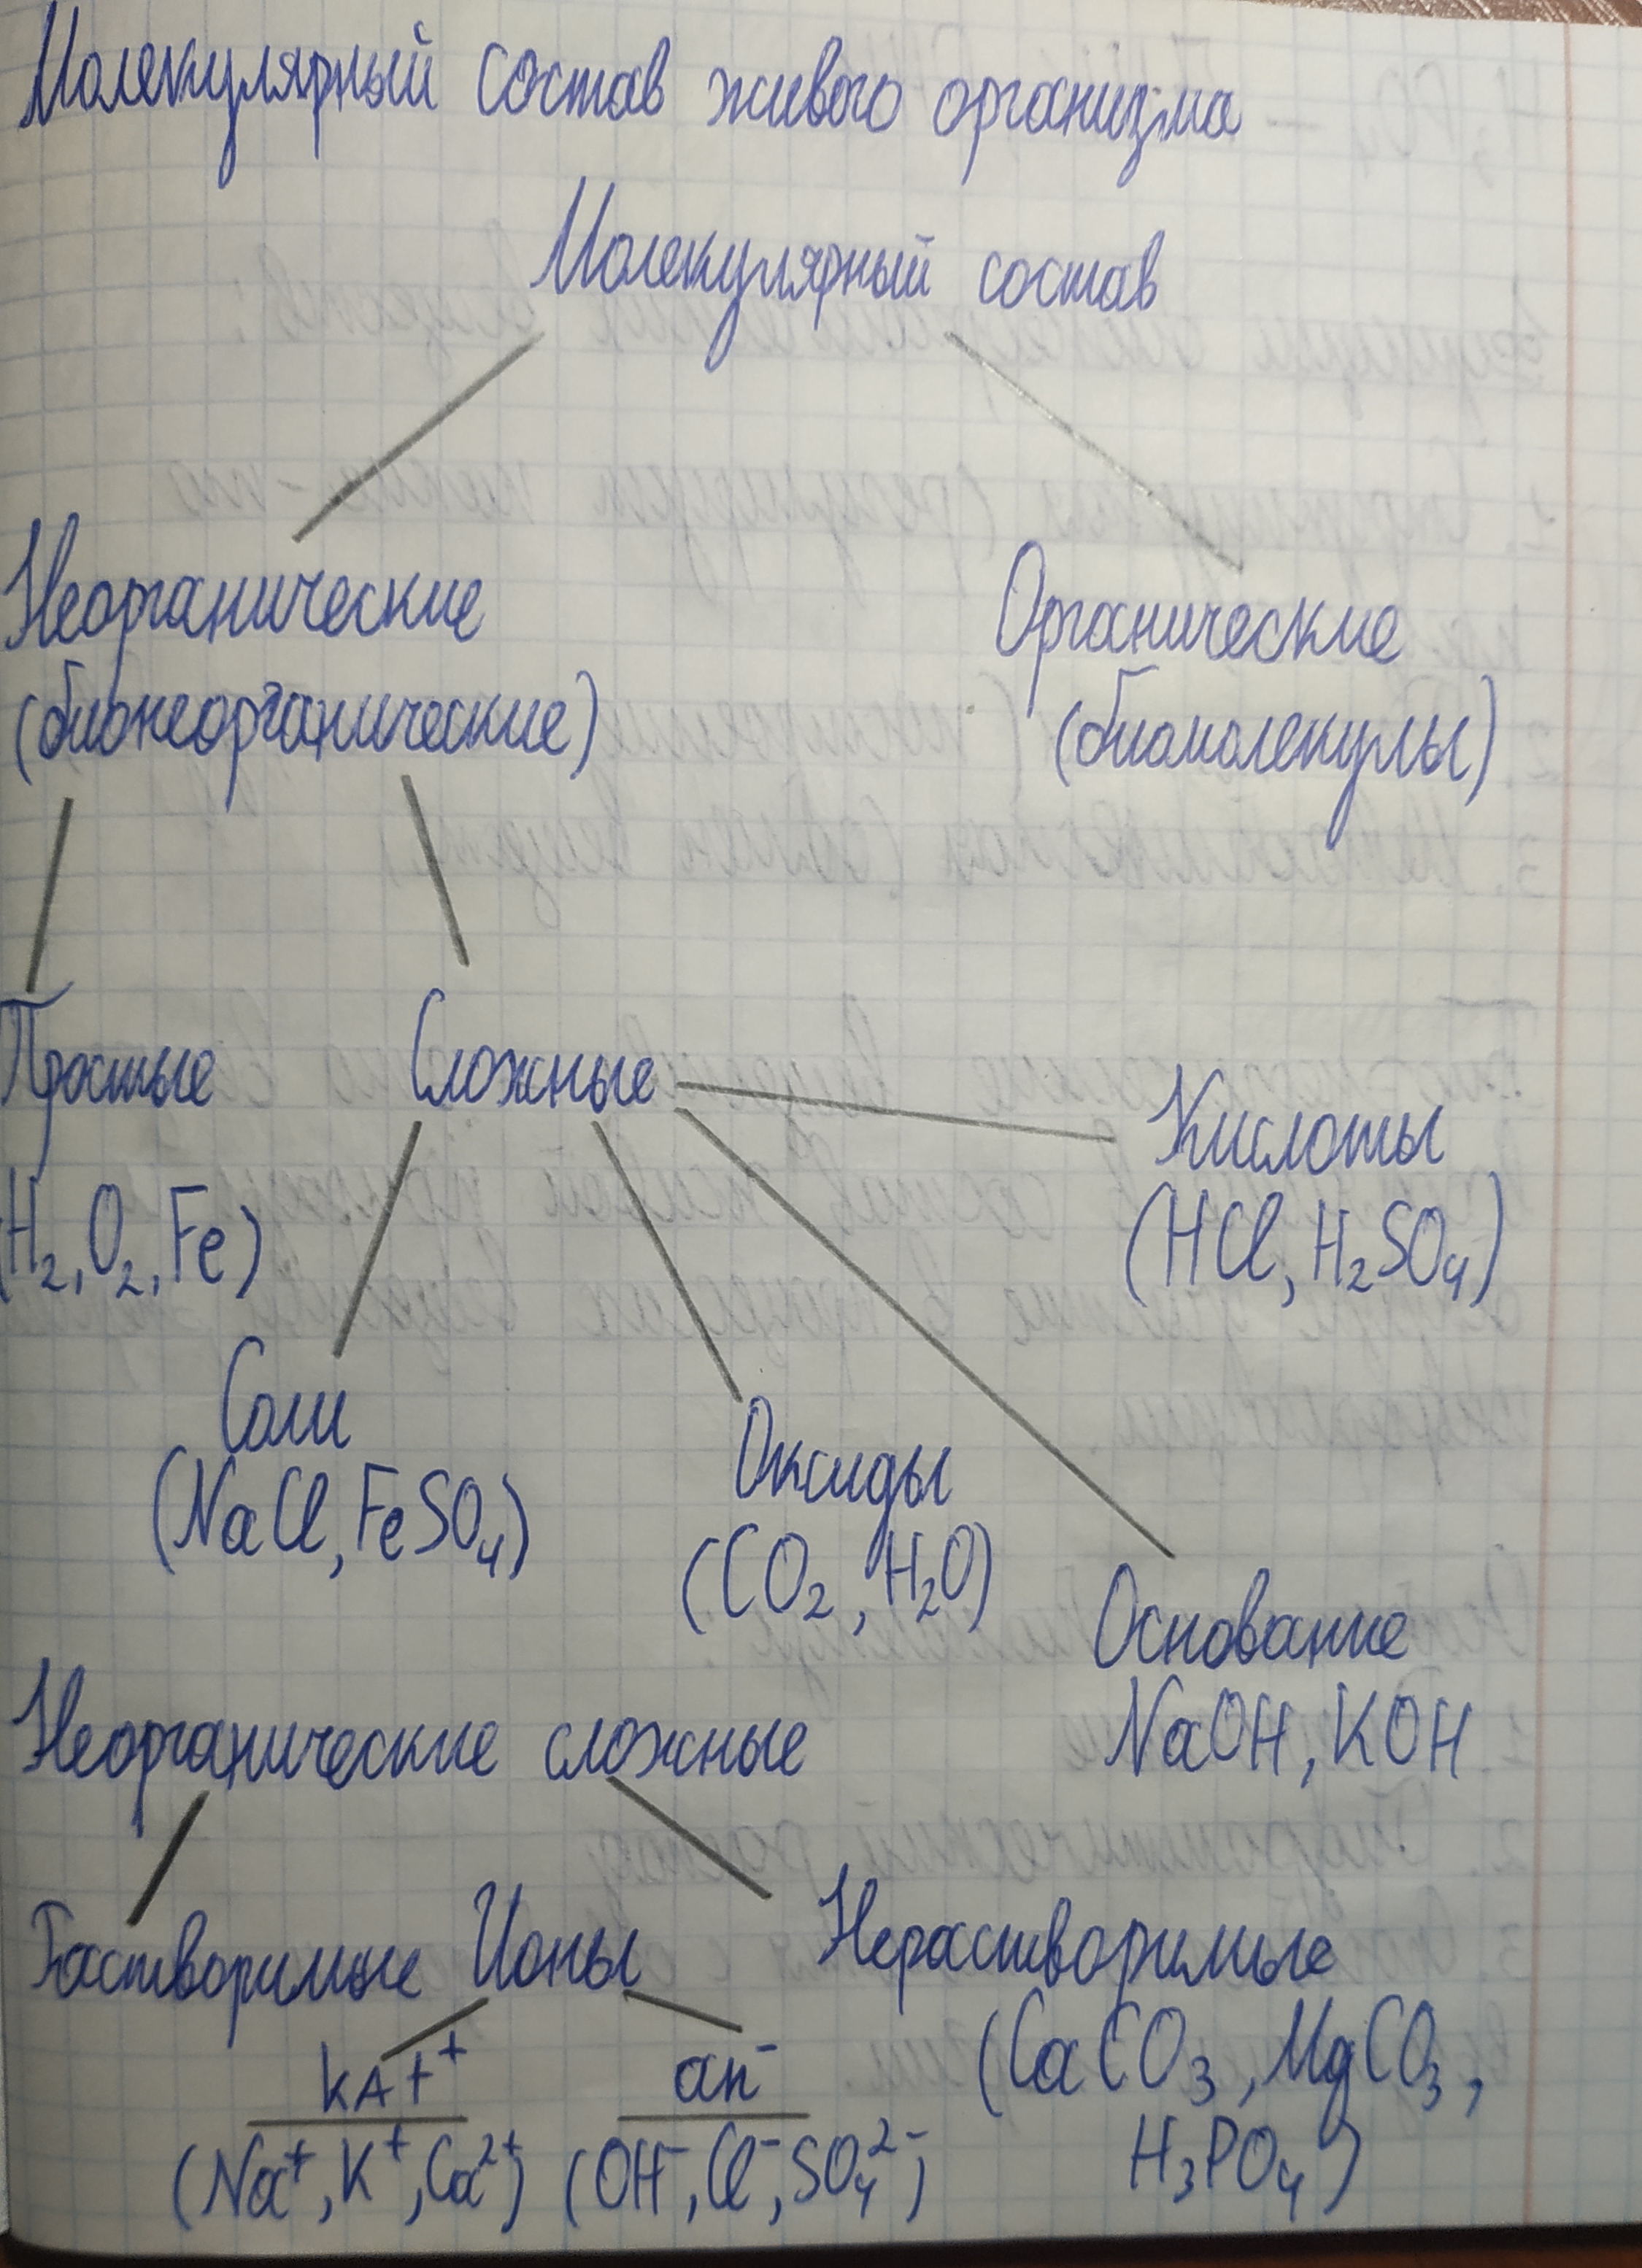 Молекулярный состав живого организма
Молекулярный состав
Неорганические
(бионеорганические)
Органические
(биомолекулы)
Простые
(H₂, O₂, Fe)
Сложные
Кислоты
(HCl, H₂SO₄)
Соли
(NaCl, FeSO₄)
Оксиды
(CO₂, H₂O)
Основание
NaOH, KOH
Неорганические сложные
Растворимые Ионы Нерастворимые
кат⁺ ан⁻
(Na⁺, K⁺, Ca²⁺) (OH⁻, Cl⁻, SO₄²⁻)
(CaCO₃, MgCO₃,
H₃PO₄)